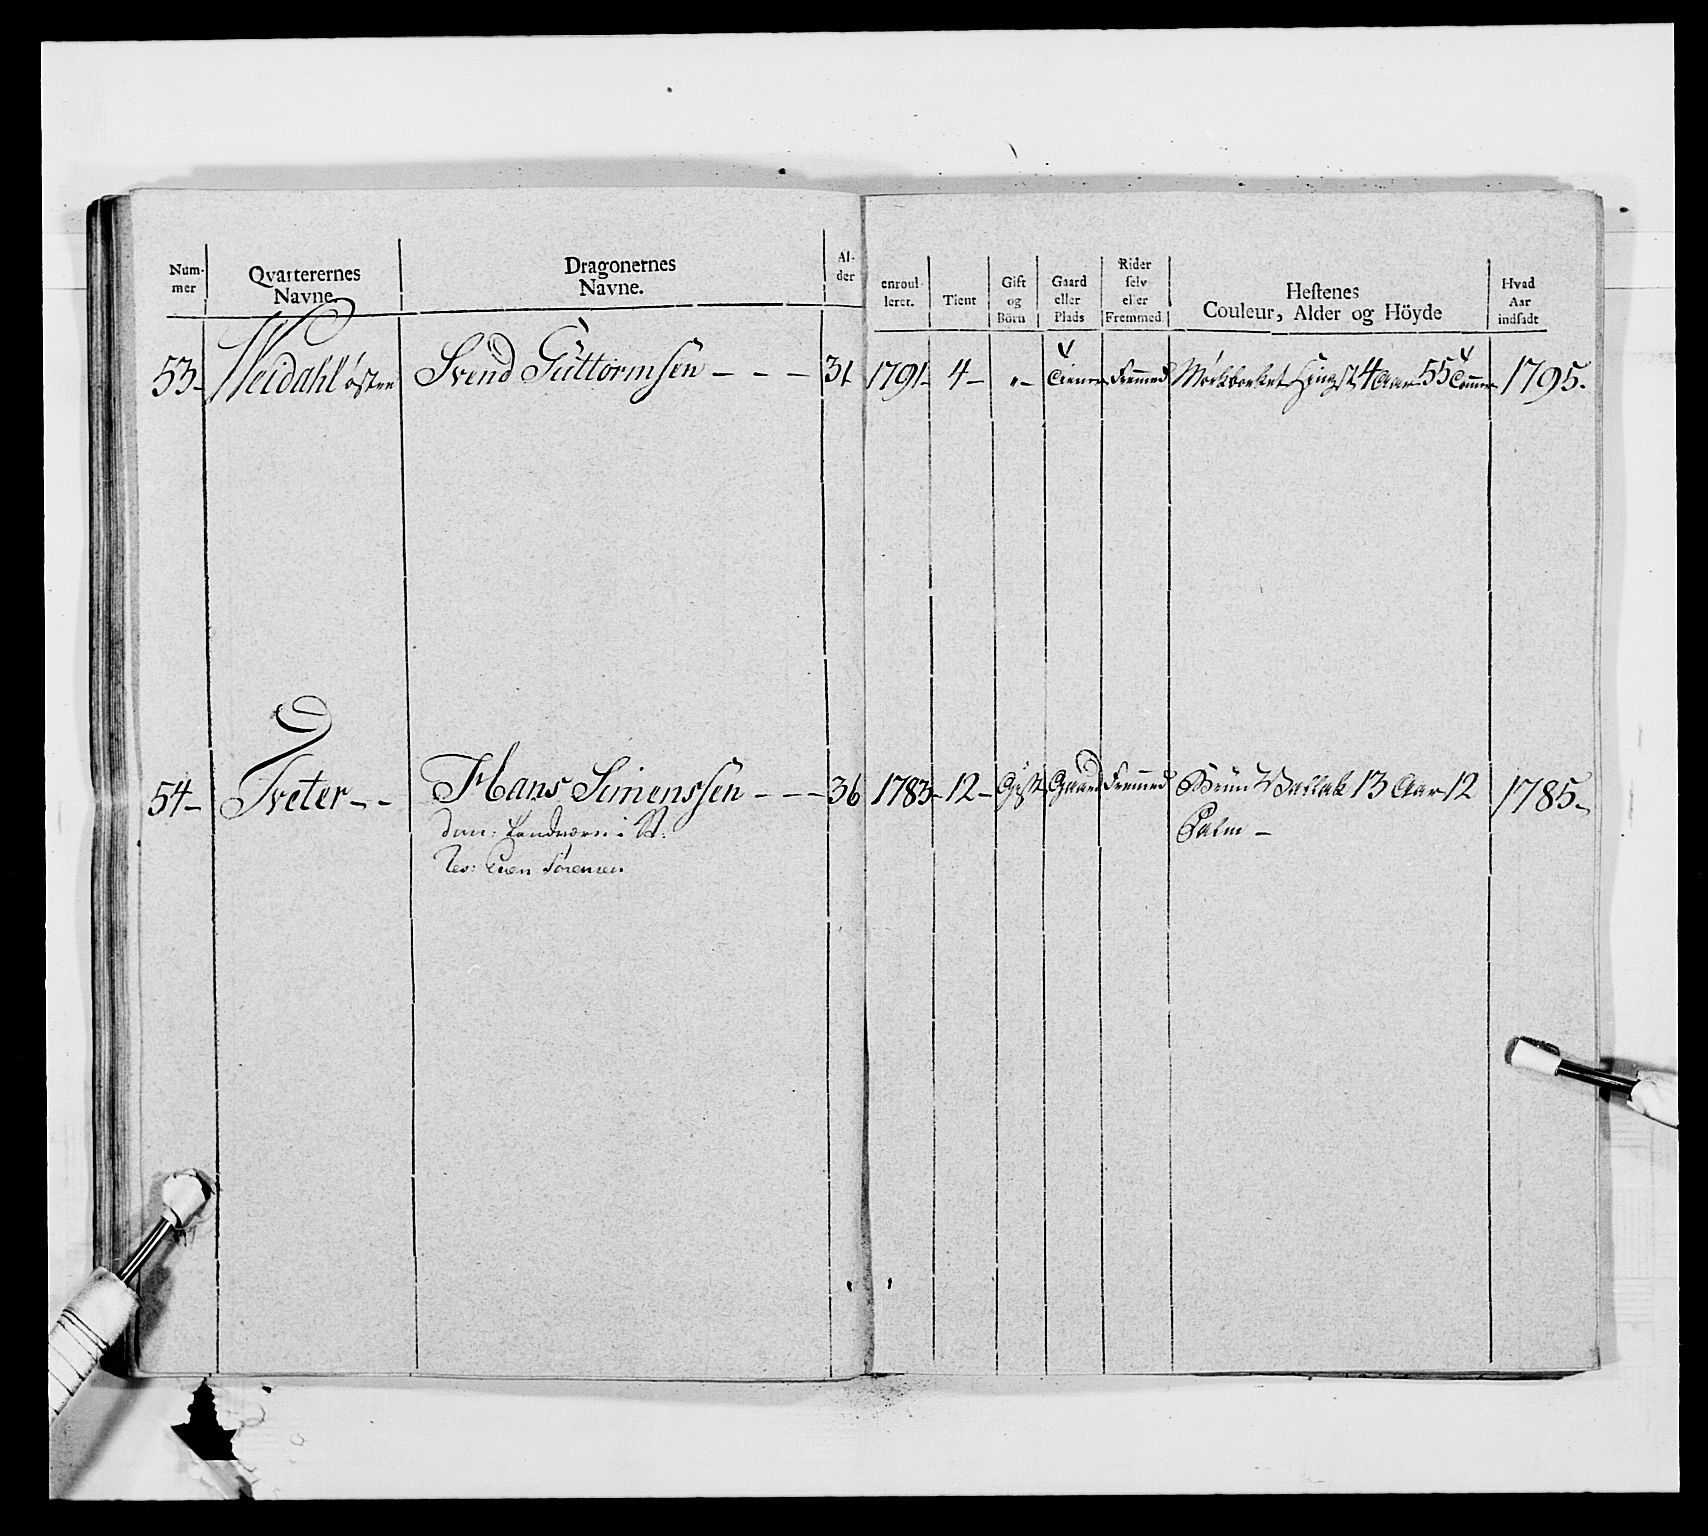 Num-
mer
Qvarterernes
Navne.
Dragonernes
Navne.
Al-
der
enroul-
leret.
Tient
Gift
og
Börn
Gaard
eller
Plads
Rider
selv
eller
Fremmed
Hestenes
Couleur, Alder og Höyde
Hvad
Aar
indsadt
53- Weidahl østen Svend Guttormsen - - - 31 1791- 4- "- Tiener Fremmed Mörkbrunet Hingst 4 Aar 55 Tommer 1795.
54- Tveter - - Hans Simenssen - - - 36 1783- 12- Gift Gaard Fremmed Bruun Vallak 13 Aar 12 1785-
Palm -
Landværn i
Res: Even Sørensen